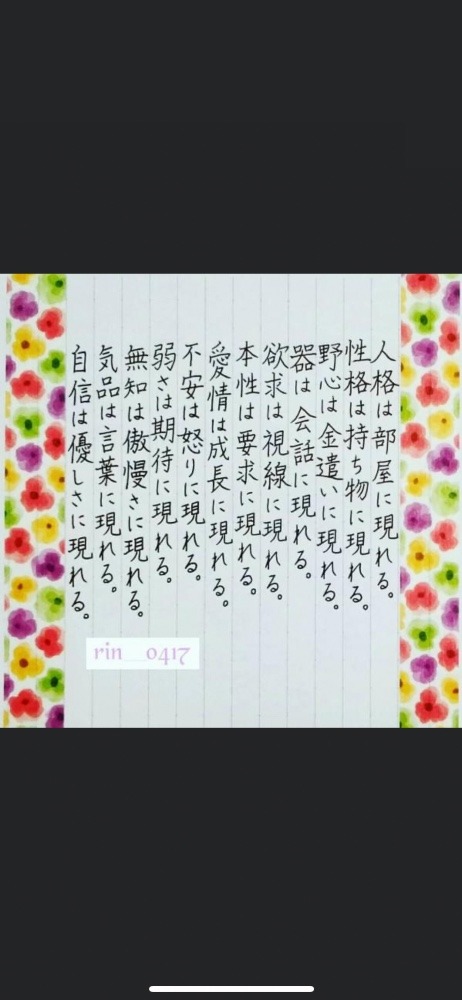 人格は部屋に現れる。
性格は持ち物に現れる。
野心は金遣いに現れる。
器は会話に現れる。
欲求は視線に現れる。
本性は要求に現れる。
愛情は成長に現れる。
不安は怒りに現れる。
弱さは期待に現れる。
無知は傲慢さに現れる。
気品は言葉に現れる。
自信は優しさに現れる。
rin__0417